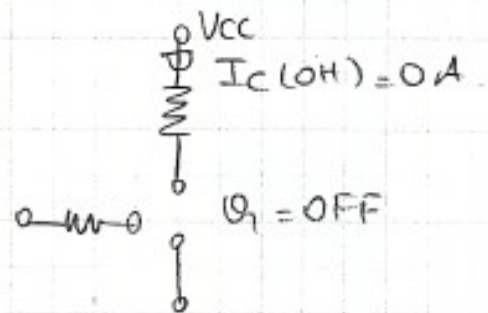 VCC
IC(OH)=0A
Q1=OFF